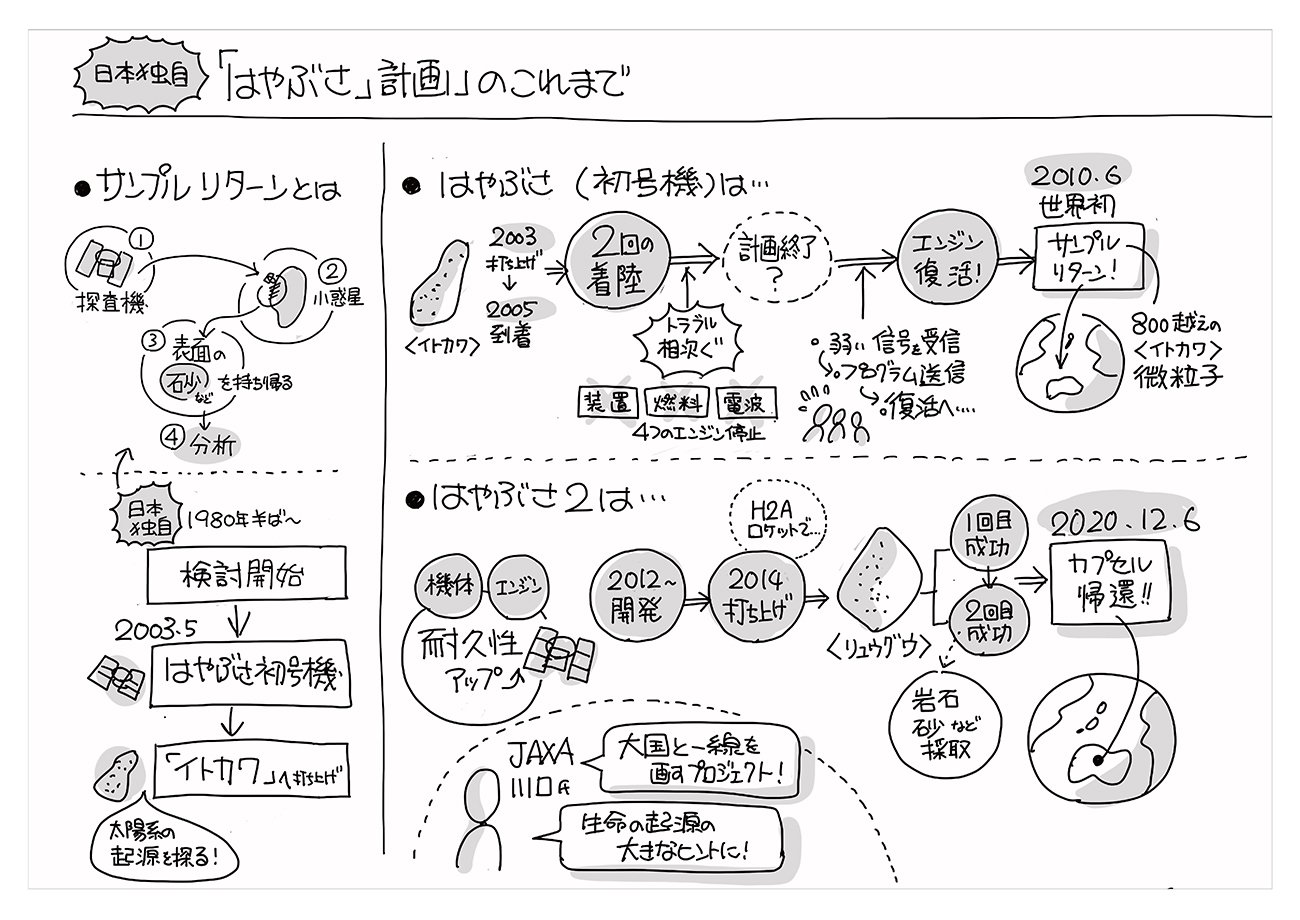 日本独自
「はやぶさ」計画」のこれまで
●サンプルリターンとは
①
探査機
②
小惑星
③
表面の
石砂
など
を持ち帰る
④
分析
日本
独自
1980年半ば〜
検討開始
2003.5
はやぶさ初号機
「イトカワ」へ打ち上げ
太陽系の
起源を探る!
●はやぶさ(初号機)は…
〈イトカワ〉
2003
打ち上げ
2005
到着
2回の
着陸
トラブル
相次ぐ
装置
燃料
電波
4つのエンジン停止
計画終了
?
・弱い信号を受信
・プログラム送信
・復活へ…
エンジン
復活!
2010.6
世界初
サンプル
リターン!
800越えの
〈イトカワ〉
微粒子
●はやぶさ2は…
機体
エンジン
耐久性
アップ
2012〜
開発
2014
打ち上げ
H2A
ロケットで…
〈リュウグウ〉
1回目
成功
2回目
成功
岩石
砂など
採取
2020.12.6
カプセル
帰還!!
JAXA
川口氏
大国と一線を
画すプロジェクト!
生命の起源の
大きなヒントに!